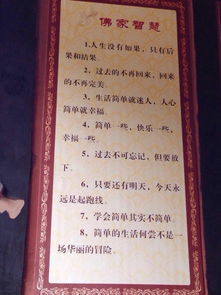 佛家智慧
1.人生没有如果，只有后
果和结果。
2、过去的不再回来，回来
的不再完美。
3、生活简单就迷人，人心
简单就幸福。
4、简单一些，快乐一些，
幸福一些。
5、过去不可忘记，但要放
下。
6、只要还有明天，今天永
远是起跑线。
7、学会简单其实不简单。
8、简单的生活何尝不是一
场华丽的冒险。